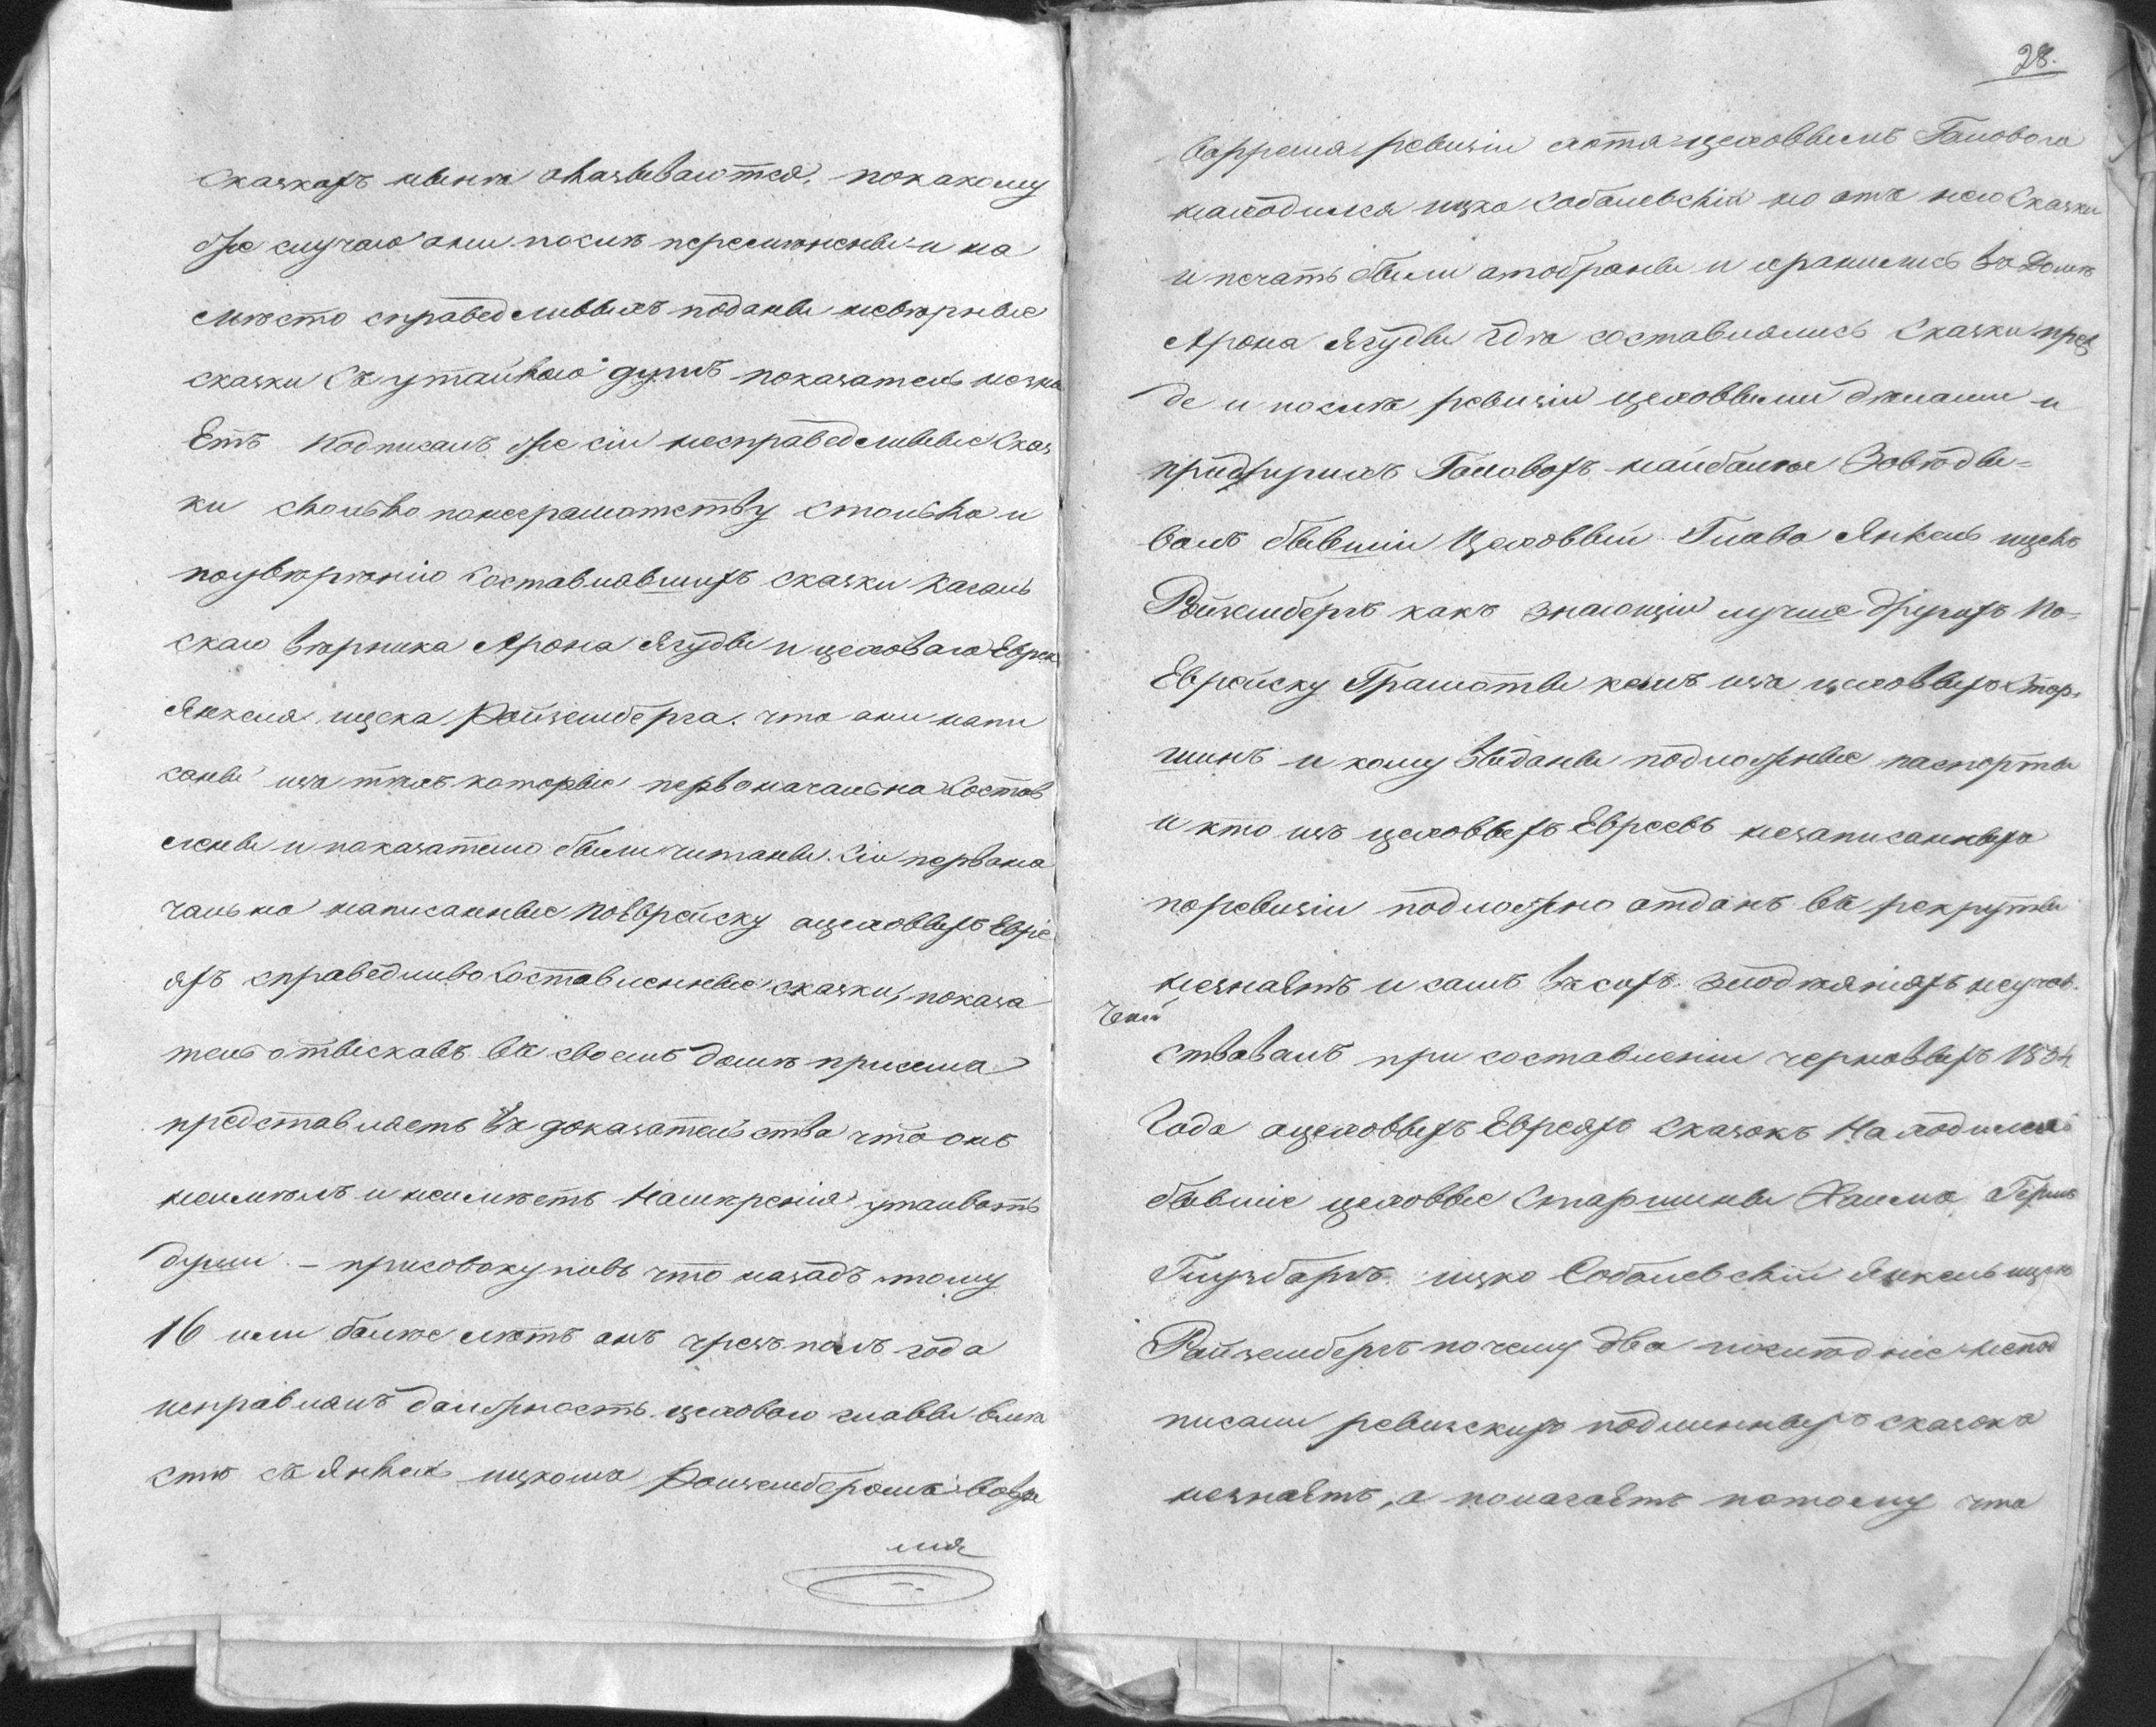 сказкахъ нынѣ оказываются, покакому
же случаю они послѣ перемѣнены и на
мѣсто справедливыхъ поданы невѣрные
сказки съ утайкою душъ показатель незна
Етъ Подписалъ же сіи несправедливые Сказ
ки сколько понеграмотству столько и
поувѣренію составлявшихъ сказки кагаль
скаго вѣрника Арона Ягуды и цеховаго Еврея
Янкеля ицека Райземберга. что они напи
саны изъ тѣхъ которые первоначально состав
лены и показателю были читаны. Сіи первона
чально написанные поЕврейску оцеховыхъ Евре
яхъ справедливо составленные сказки, показа
тель отыскавъ въ своемъ домѣ присемъ
представляетъ въ доказательства что онъ
неимѣлъ и неимѣетъ намѣренія утаивать
души. – присовокупивъ что назадъ тому
16 или болѣе лѣтъ онъ чрезъ полъ года
исправлялъ должность цеховаго главы вмѣ
стѣ съ Янкель ицкомъ Райзембергомъ вовре
мя
28.
Вовремя ревизіи хотя цеховымъ Головою
находился ицко Собалевскій но отъ него Сказки
и печать были отобраны и хранились въ Домѣ
Арона Ягуды гдѣ составлялись Сказки преж
де и послѣ ревизіи цеховыми дѣлами и
придругихъ Головахъ наиболѣе Завѣды=
валъ бывшій Цеховый Глава Янкель ицекъ
Райзембергъ какъ знающій лучше другихъ по-
Еврейску Грамоты кѣмъ изъ цеховыхъ Стар-
шинъ и кому выданы подложные паспорты
и кто изъ цеховыхъ Евреевъ незаписанныхъ
поревизіи подложно отданъ въ рекруты
незнаетъ и самъ въ сихъ злодѣяніяхъ неучав-
ствовалъ при составленіи черновыхъ 1834
Года оцеховыхъ Евреяхъ Сказокъ Находились
бывшіе цеховые Старшины Хаимъ Герш
Гинзбаргъ. ицко Собалевскій Янкель ицек
Райзембергъ почему два послѣдніе непод
писали ревизскихъ подлинныхъ сказокъ
незнаетъ, а полагаетъ потому что